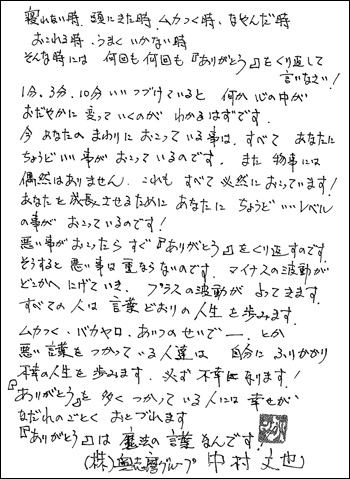 寝れない時、頭にきた時、ムカつく時、なやんだ時
おこれる時、うまくいかない時
そんな時には 何回も何回も『ありがとう』をくり返して
言いなさい!
1分、3分、10分 いいつづけていると 何か心の中が
おだやかに変っていくのが わかるはずです。
今 あなたのまわりにおこっている事は、すべて あなたに
ちょうどいい事がおこっているのです。また 物事には
偶然はありません、これも すべて必然におこっています!
あなたを成長させるために あなたに ちょうどいいレベル
の事が おこっているのです!
悪い事がおこったら すぐ『ありがとう』をくり返すのです
そうすると 悪い事は 重ならないのです。マイナスの波動が
どこかへにげていき、プラスの波動が よってきます。
すべての人は 言葉どおりの人生を歩みます。
ムカつく、バカヤロ、あいつのせいで—、とか
悪い言葉をつかっている人達は 自分に ふりかかり
不幸の人生を歩みます。必ず不幸になります!
『ありがとう』を多くつかっている人には 幸せが
なだれのごとく おとづれます
『ありがとう』は 魔法の言葉なんです!
(株)奥志摩グループ 中村文也